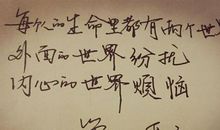 每个人的生命里都有两个世
外面的世界纷扰
内心的世界烦恼